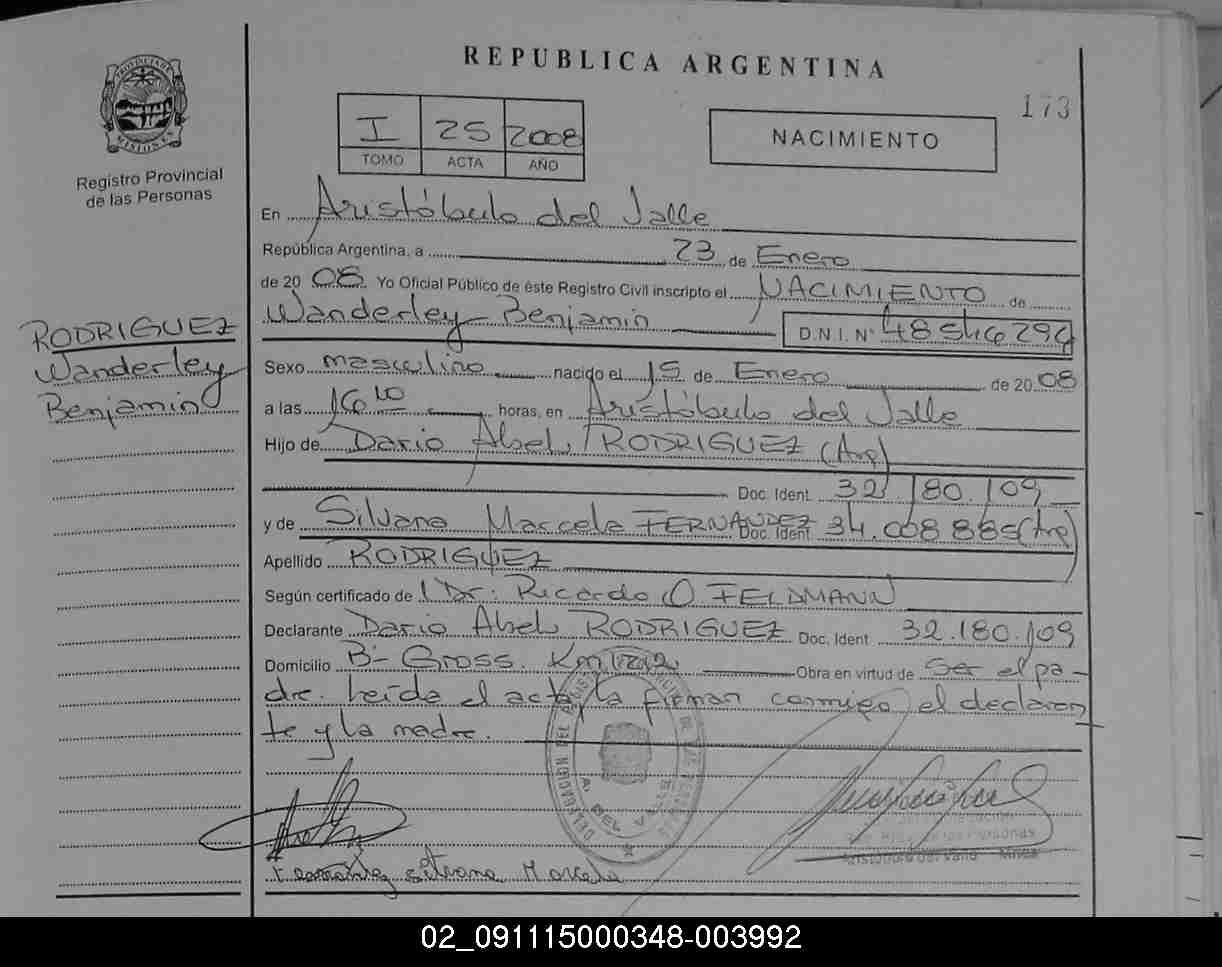 REPUBLICA ARGENTINA
173
PROVINCIA DE MISIONES
Registro Provincial
de las Personas
I 25 2008
TOMO ACTA AÑO
NACIMIENTO
En Aristóbulo del Valle
República Argentina, a 23 de Enero
de 2008 Yo Oficial Público de éste Registro Civil inscripto el NACIMIENTO de
Wanderley Benjamin D.N.I. Nº 48546294
RODRIGUEZ
Wanderley
Benjamin
Sexo masculino nacido el 15 de Enero de 2008
a las 16 10 horas, en Aristóbulo del Valle
Hijo de Dario Abel RODRIGUEZ (Arg)
Doc. Ident. 32.180.109
y de Silvana Marcela FERNANDEZ Doc. Ident. 34.008.885 (Arg)
Apellido RODRIGUEZ
Según certificado de Dr: Ricardo O. FELDMANN
Declarante Dario Abel RODRIGUEZ Doc. Ident. 32.180.109
Domicilio Bº Gross. Km Obra en virtud de ser el pa-
dre. Leída el acta la firman conmigo el declaran
te y la madre.
DELEGACION DEL
A. DEL VALLE
Fernandez Silvana Marcela
Aristóbulo del Valle - Mnes.
02_091115000348-003992